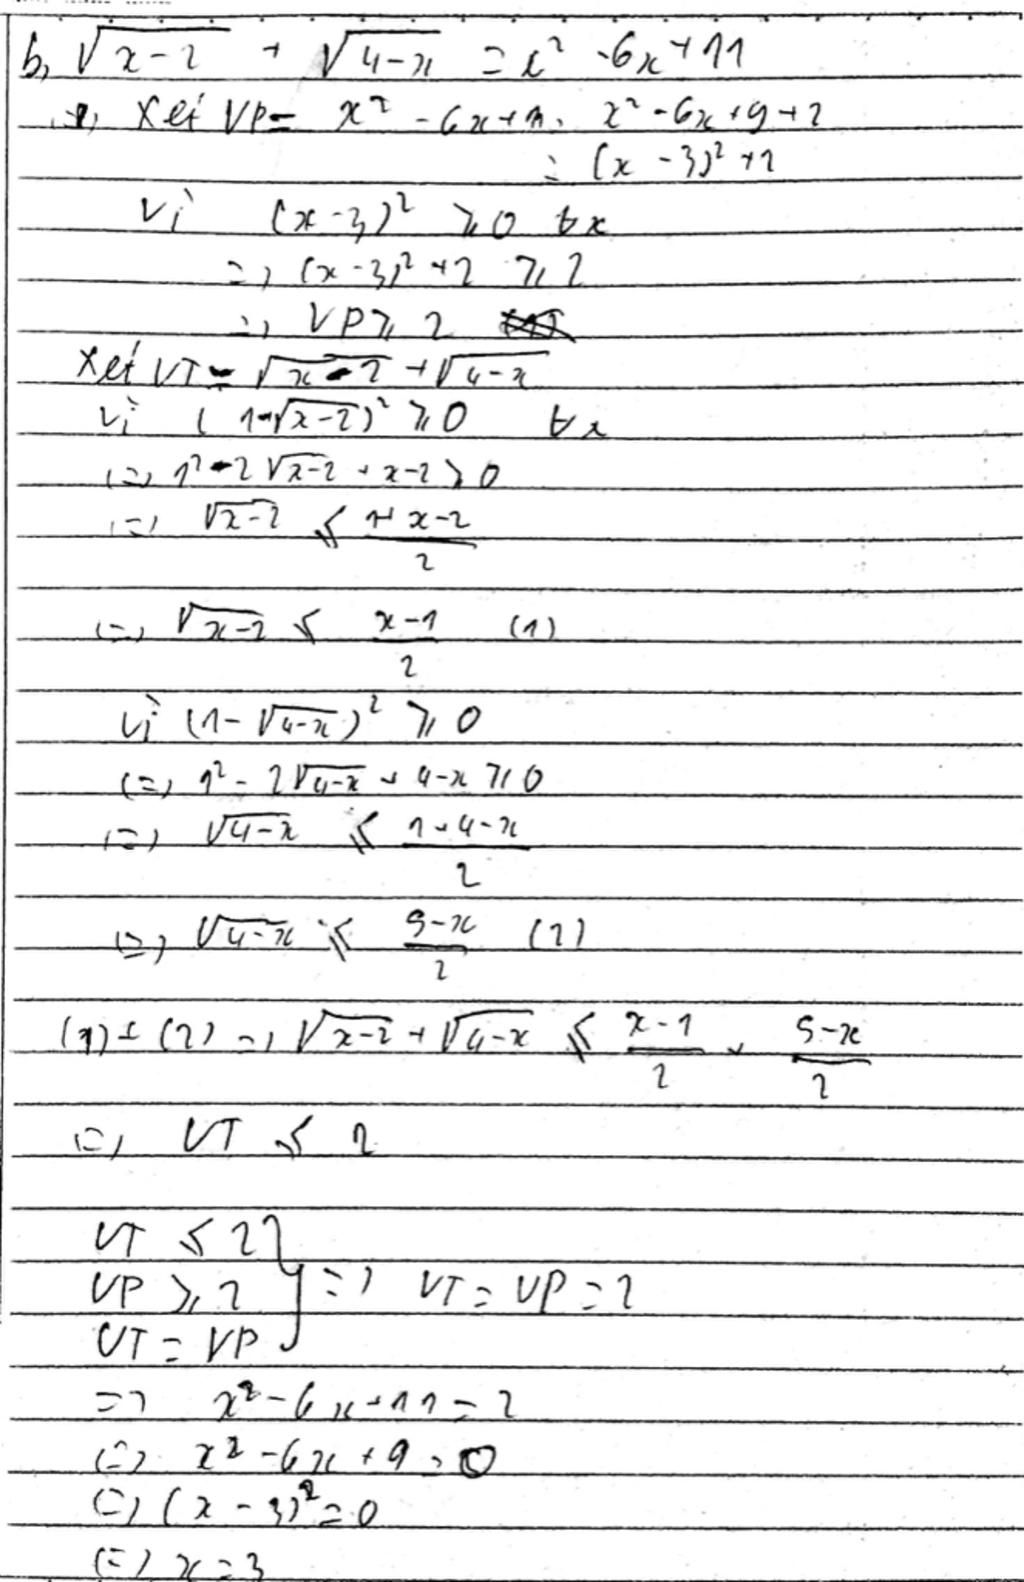 b, √(x-2) + √(4-x) = x² -6x+11
Xét VP= x² -6x+11= x²-6x+9+2
= (x-3)²+2
Vì (x-3)² ⩾0 ∀x
=> (x-3)²+2 ⩾ 2
=> VP⩾ 2
Xét VT= √(x-2) +√(4-x)
Vì (1-√(x-2))² ⩾0 ∀x
<=> 1²-2√(x-2) + x-2⩾0
<=> √(x-2) ⩽ (1+x-2)/2
<=> √(x-2) ⩽ (x-1)/2 (1)
Vì (1-√(4-x))² ⩾0
<=> 1²-2√(4-x) + 4-x ⩾0
<=> √(4-x) ⩽ (1+4-x)/2
<=> √(4-x) ⩽ (5-x)/2 (2)
(1)+(2) => √(x-2)+√(4-x) ⩽ (x-1)/2 + (5-x)/2
<=> VT ⩽ 2
VT ⩽ 2
VP ⩾ 2 } => VT = VP = 2
VT = VP
=> x²-6x+11=2
<=> x²-6x+9=0
<=> (x-3)²=0
<=> x=3